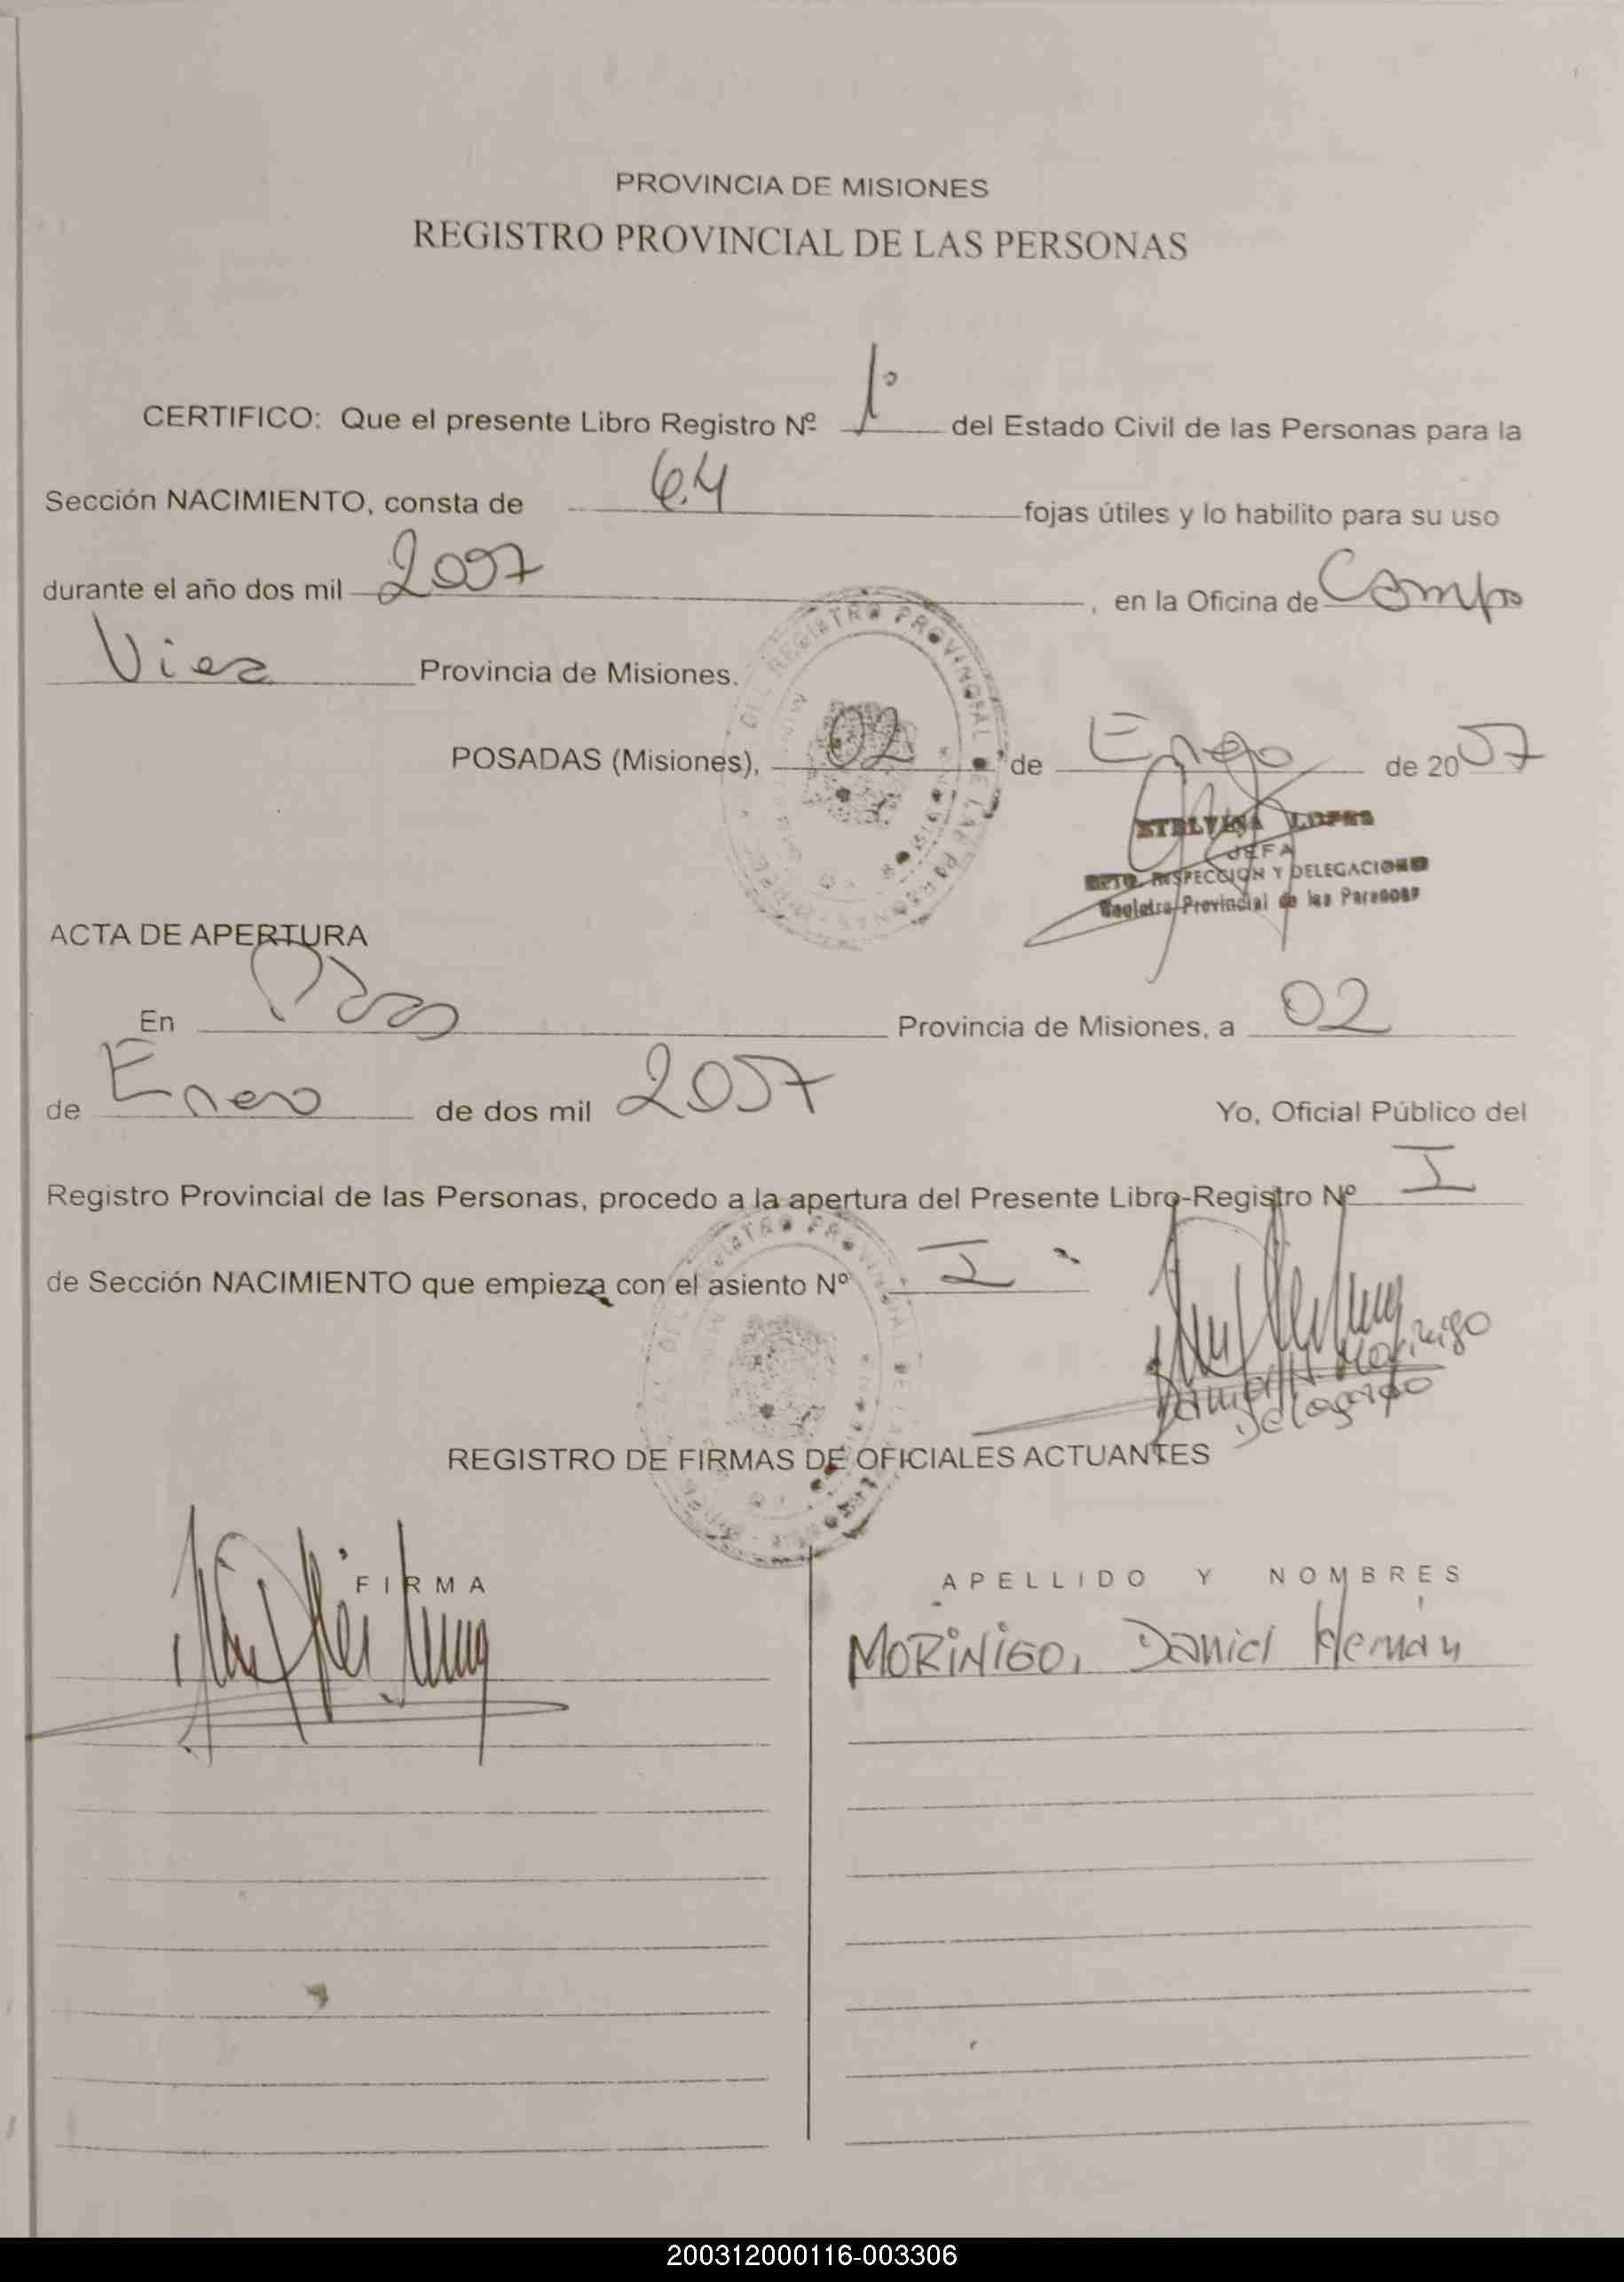 PROVINCIA DE MISIONES
REGISTRO PROVINCIAL DE LAS PERSONAS
CERTIFICO: Que el presente Libro Registro Nº 1º del Estado Civil de las Personas para la
Sección NACIMIENTO, consta de 64 fojas útiles y lo habilito para su uso
durante el año dos mil 2007, en la Oficina de Campo
Viera Provincia de Misiones.
POSADAS (Misiones), 02 de Enero de 2007
LOPES
JEFA
DPTO. INSPECCION Y DELEGACIONES
Registro Provincial de las Personas
ACTA DE APERTURA
En Pdas Provincia de Misiones, a 02
de Enero de dos mil 2007 Yo, Oficial Público del
Registro Provincial de las Personas, procedo a la apertura del Presente Libro-Registro Nº I
de Sección NACIMIENTO que empieza con el asiento Nº I
Daniel H. Morinigo
Delegado
REGISTRO DE FIRMAS DE OFICIALES ACTUANTES
FIRMA
APELLIDO Y NOMBRES
MORiNiGO, Daniel Hernán
200312000116-003306